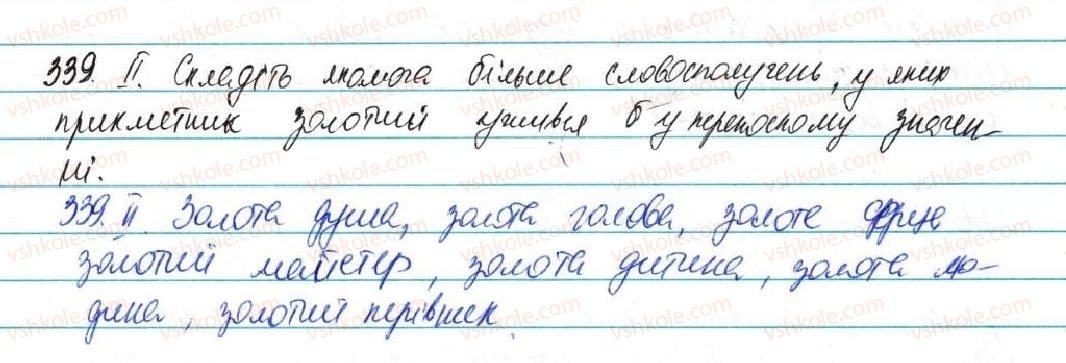 339. II. Складіть якомога більше словосполучень, у яких
прикметник золотий уживався б у переносному значен-
ні.
339. II. Золота душа, золота голова, золоте серце
золотий майстер, золота дитина, золота лю-
дина, золотий керівник